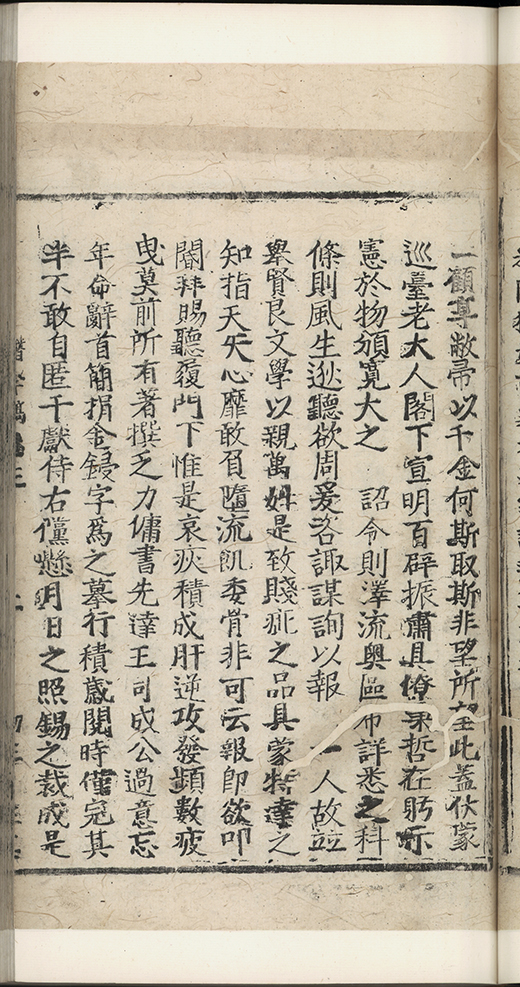 一顧享敝帚以千金何斯取斯非望所望此蓋伏蒙
巡臺老大人閣下宣明百辟振肅具僚洞哲在躬示
憲於物頒寬大之 詔令則澤流輿區布詳悉之科
條則風生逖聽欲周爰咨諏謀詢以報 一人故竝
舉賢良文學以親萬姓是致賤疵之品具蒙特達之
知指天矢心靡敢負墮流飢委骨非可云報卽欲叩
閽拜賜聽履門下惟是哀疚積成肝逆攻發頻數疲
曳莫前所有著撰乏力傭書先達王司成公過意忘
年命辭首簡捐金鋟字爲之摹行積歲閱時僅完其
半不敢自匿干獻侍右儻懸月日之照錫之裁成是